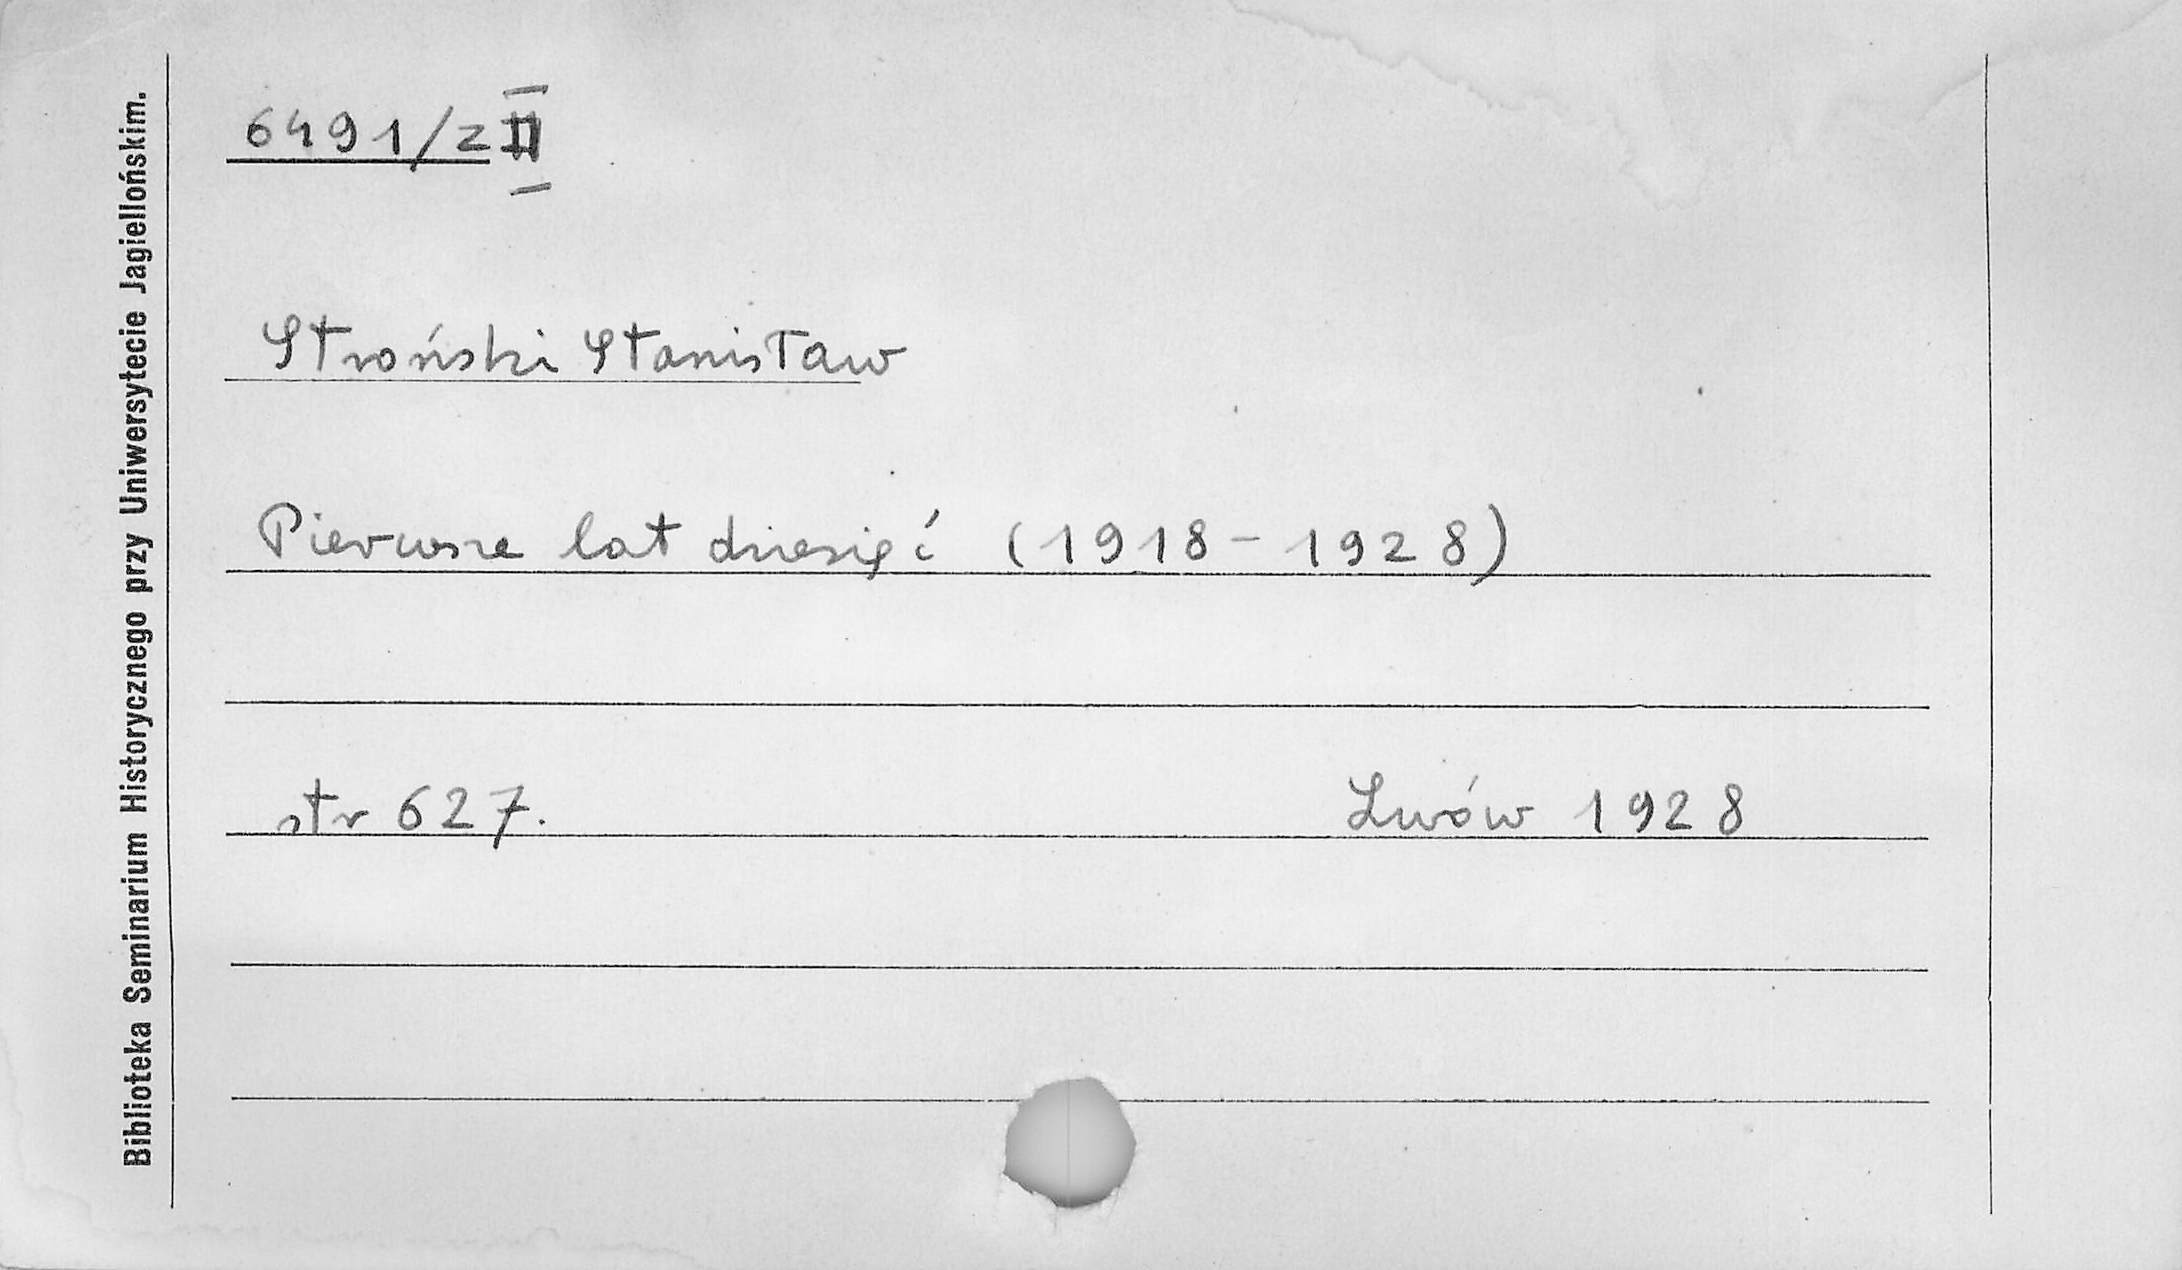 6491/z II
Stroński Stanisław
Pierwsze lat dziesięć (1918-1928)
str 627. Lwów 1928
Biblioteka Seminarium Historycznego przy Uniwersytecie Jagiellońskim.